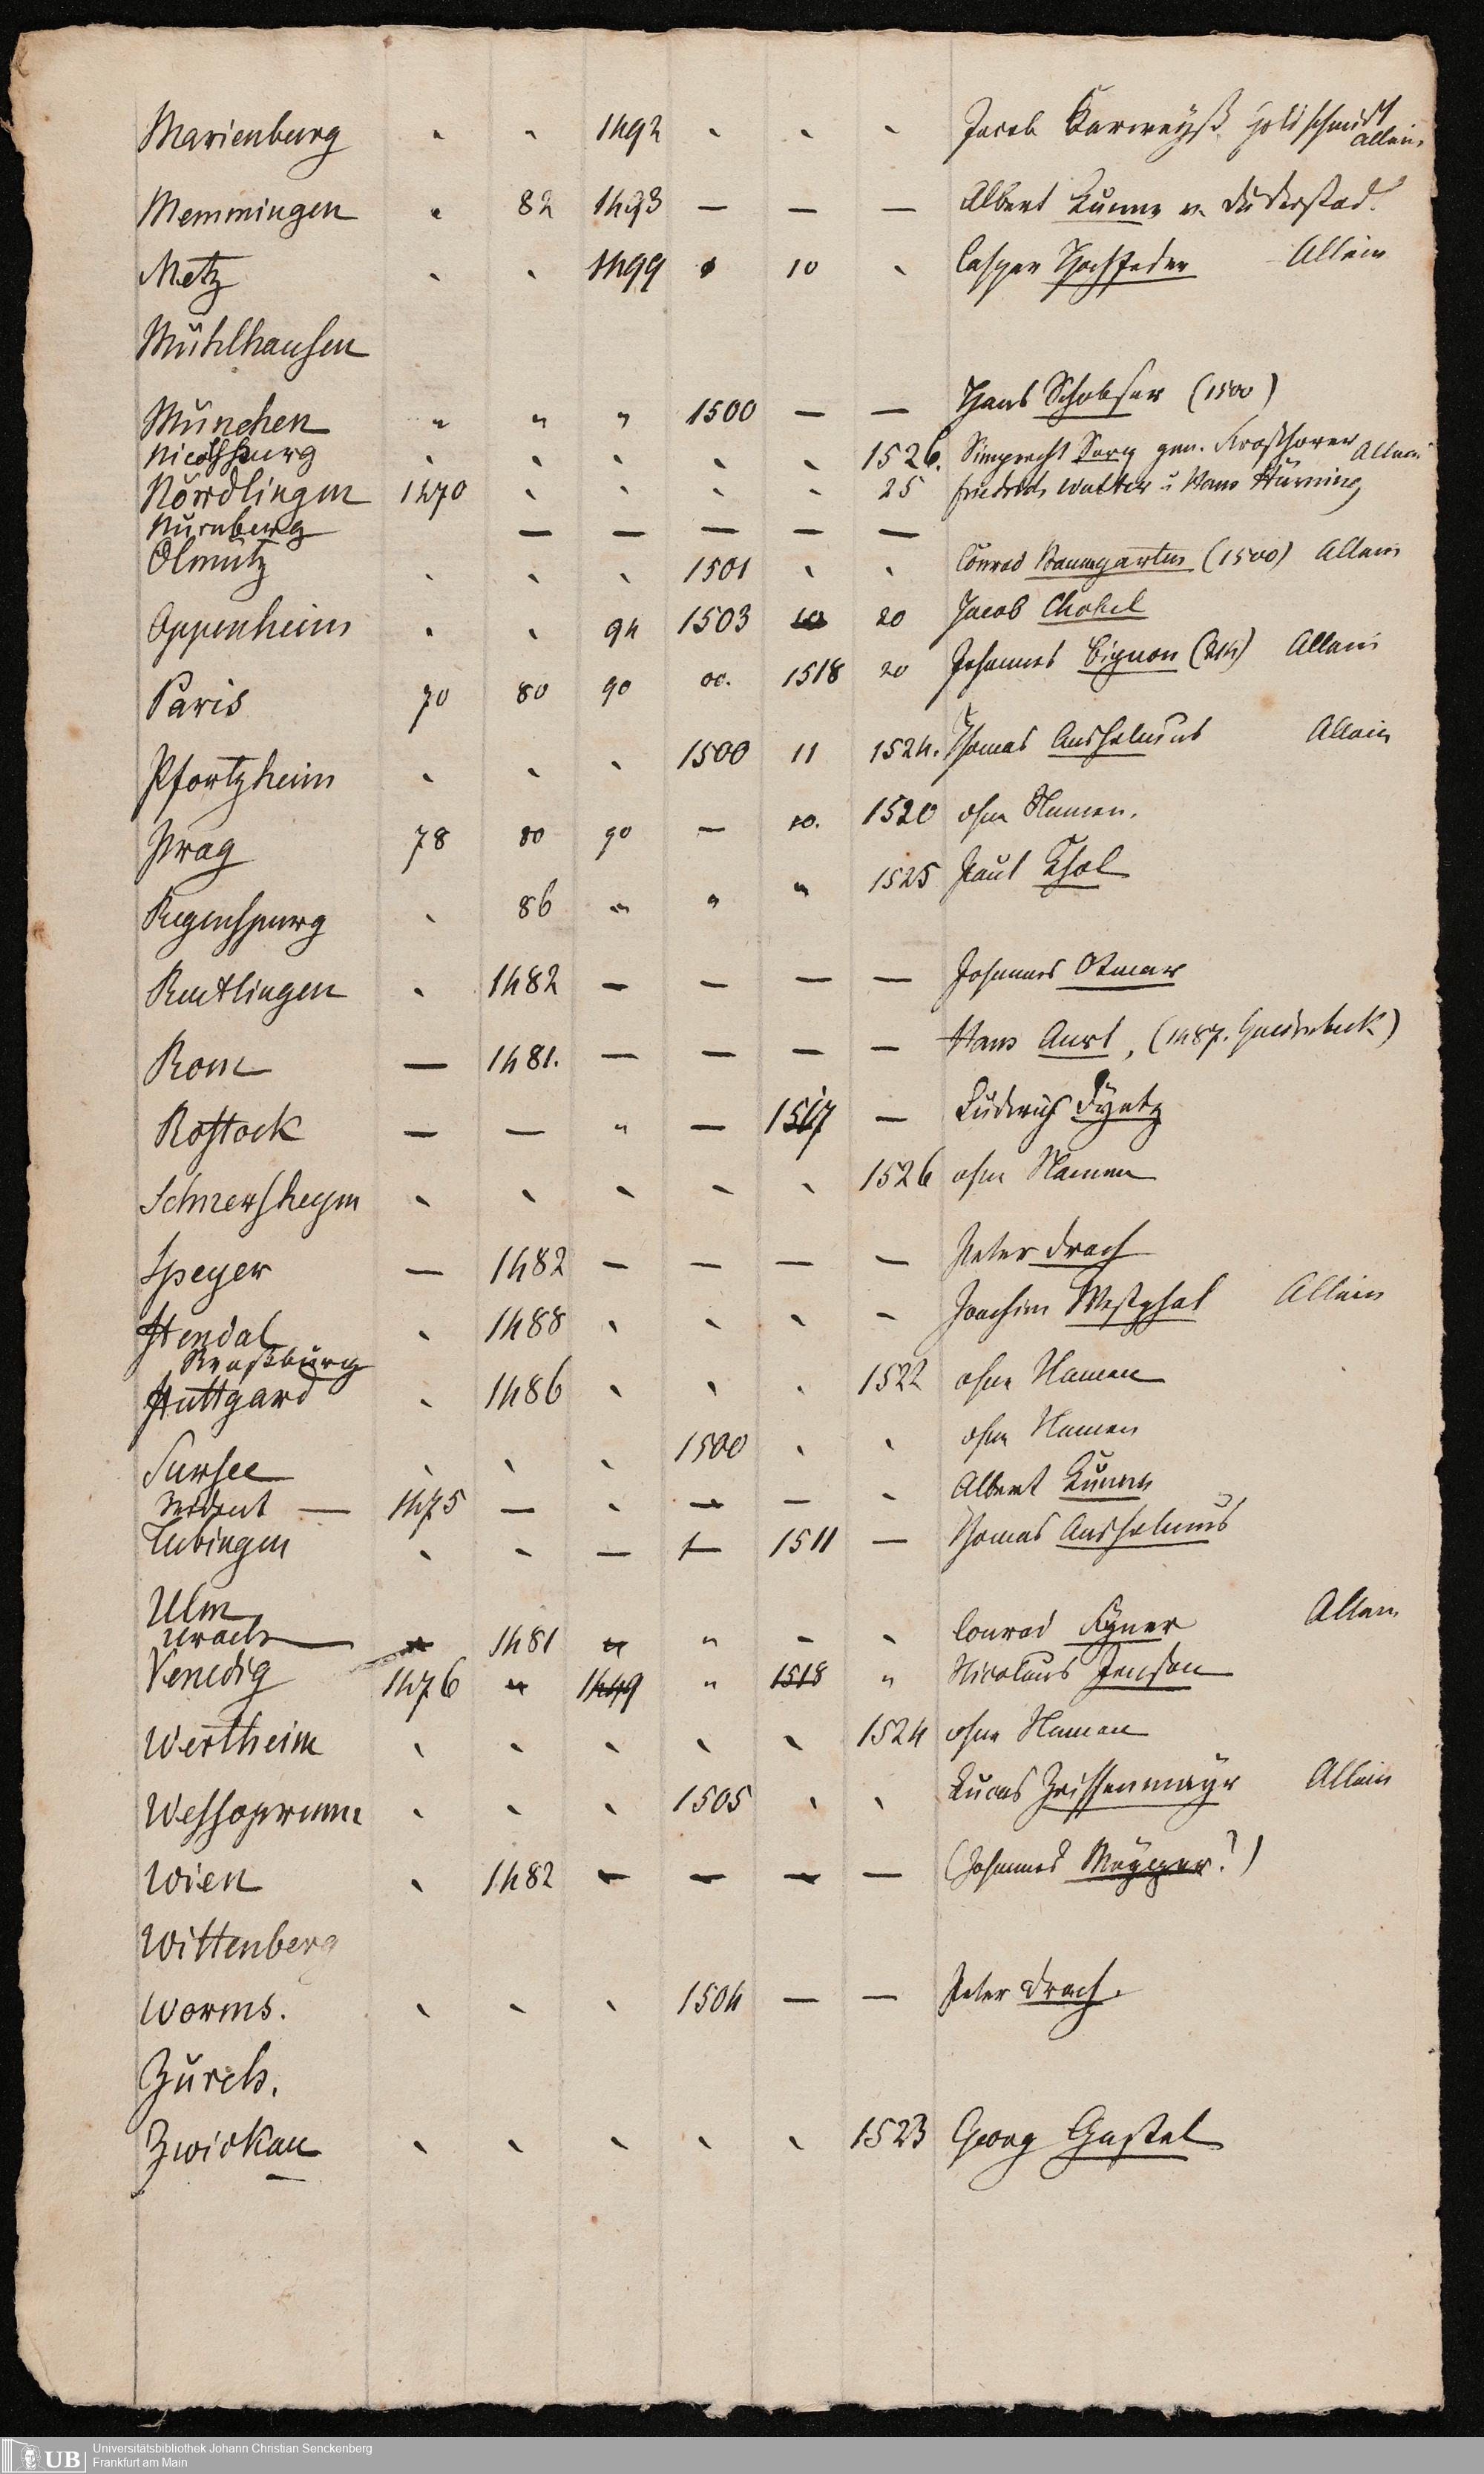 Marienburg " " 1492 " " " Jacob Karweyß Goldschmidt allein
Memmingen " 82 1493 — — — Albert Kunne v. Duderstad.
Metz " " 1499 10 " Casper Hochfeder Allein
Mühlhausen
München " " " 1500 — — Hans Schobser (1500)
Nicolsburg " " " " " 1526. Simprecht Sorg gen. Froschower Allein
Nördlingen 1470 " " " " 25 Friedrich Walter u Hans Hürning
Nürnberg — — — — —
Olmütz " " " 1501 " " Conrad Baumgarten (1500) Allein
Oppenheim " " 94 1503 10 20 Jacob Chobel
Paris 70 80 90 00. 1518 20 Johannes Bignon Allein
Pfortzheim " " " 1500 11 1524. Thomas Anshelmus Allein
Prag 78 80 90 — 10. 1520 ohne Namen.
Regenspurg " 86 " " " 1525 Paul Khol
Reutlingen " 1482 — — — — Johannes Otmar
Rom — 1481. — — — — Hans Aurl, (1487.
Rostock — — " — 1517 — Ludwich Dyetz
Schmersheym " " " " " 1526 ohne Namen
Speyer — 1482 — — — — Peter Drach
Stendal " 1488 " " " — Joachim Westphal Allein
Straßburg
Stuttgard " 1486 " " " 1522 ohne Namen
Sursee " " " 1500 " " ohne Namen
Trident — 1475 — " — — " Albert Kunne
Tubingen " — — — 1511 — Thomas Anshelmus
Ulm
Urach — 1481 " " — " Conrad Fyner Allein
Venedig 1476 " 1449 " 1518 " Nicolaus Jenson
Wertheim " " " " " 1524 ohne Namen
Wessoprunn " " " 1505 " " Lucas Zeissenmayr Allein
Wien " 1482 — — — — (Johannes !)
Wittenberg
Worms. " " " 1504 — — Peter Drach.
Zürch.
Zwickau " " " " " 1523 Georg Gastel
UB Universitätsbibliothek Johann Christian Senckenberg
Frankfurt am Main